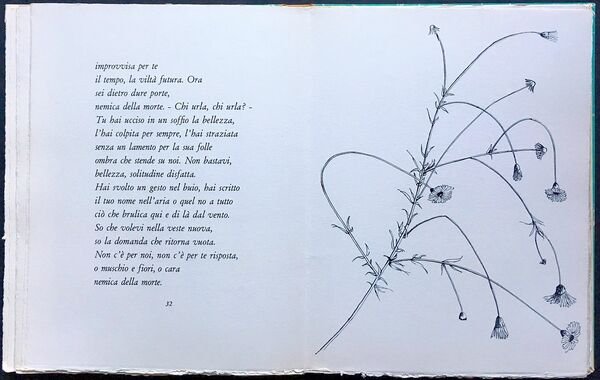 improvvisa per te
il tempo, la viltà futura. Ora
sei dietro dure porte,
nemica della morte. - Chi urla, chi urla? -
Tu hai ucciso in un soffio la bellezza,
l'hai colpita per sempre, l'hai straziata
senza un lamento per la sua folle
ombra che stende su noi. Non bastavi,
bellezza, solitudine disfatta.
Hai svolto un gesto nel buio, hai scritto
il tuo nome nell'aria o quel no a tutto
ciò che brulica qui e di là dal vento.
So che volevi nella veste nuova,
so la domanda che ritorna vuota.
Non c'è per noi, non c'è per te risposta,
o muschio e fiori, o cara
nemica della morte.
32